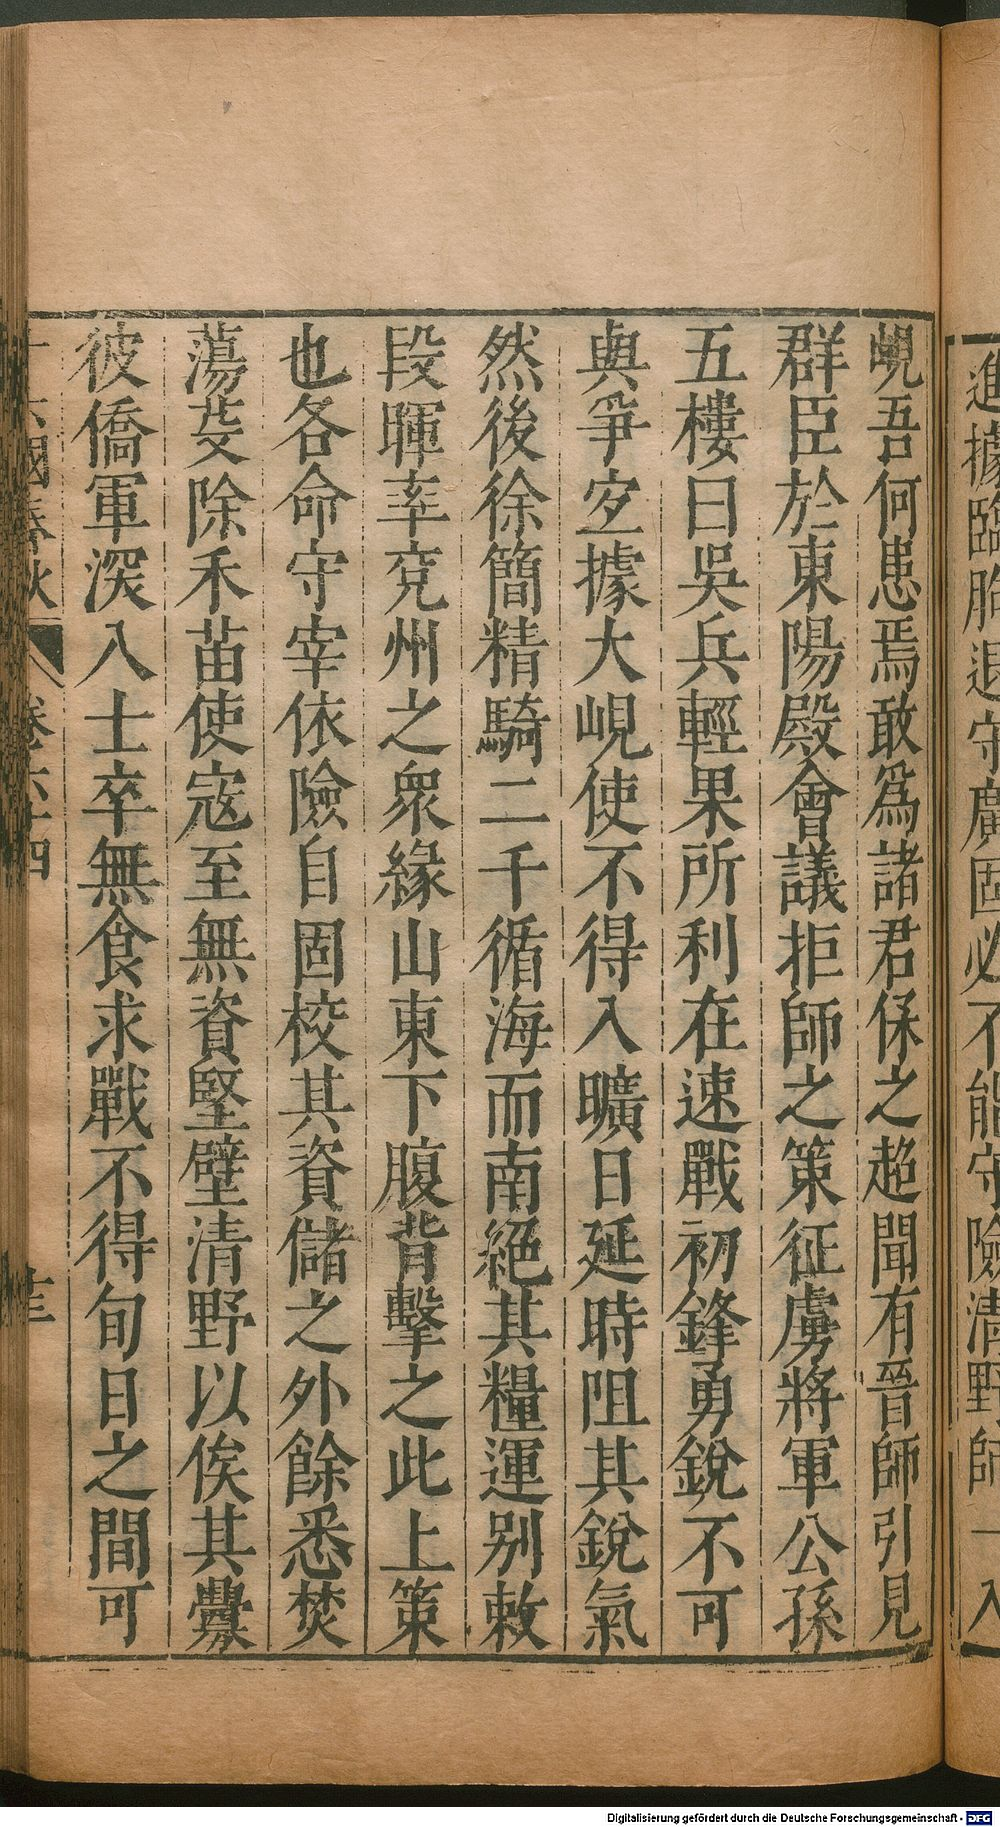 進據臨朐退守廣固必不能守險清野師一入
峴吾何患焉敢爲諸君保之超聞有晉師引見
群臣於東陽殿會議拒師之策征虜將軍公孫
五樓曰吳兵輕果所利在速戰初鋒勇銳不可
與爭宜據大峴使不得入曠日延時阻其銳氣
然後徐簡精騎二千循海而南絕其糧運别敕
段暉率兗州之衆緣山東下腹背擊之此上策
也各命守宰依險自固校其資儲之外餘悉焚
蕩芟除禾苗使寇至無資堅壁清野以俟其釁
彼僑軍深入士卒無食求戰不得旬日之間可
十六國春秋 卷六十四 十三
Digitalisierung gefördert durch die Deutsche Forschungsgemeinschaft - DFG